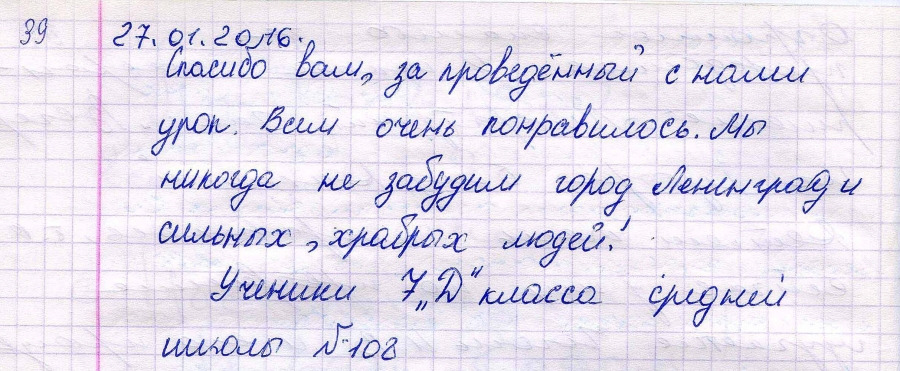 39
27.01.2016.
Спасибо вам, за проведённый с нами
урок. Всем очень понравилось. Мы
никогда не забудим город Ленинград и
сильных, храбрых людей!
Ученики 7 „Д" класса средней
школы №108